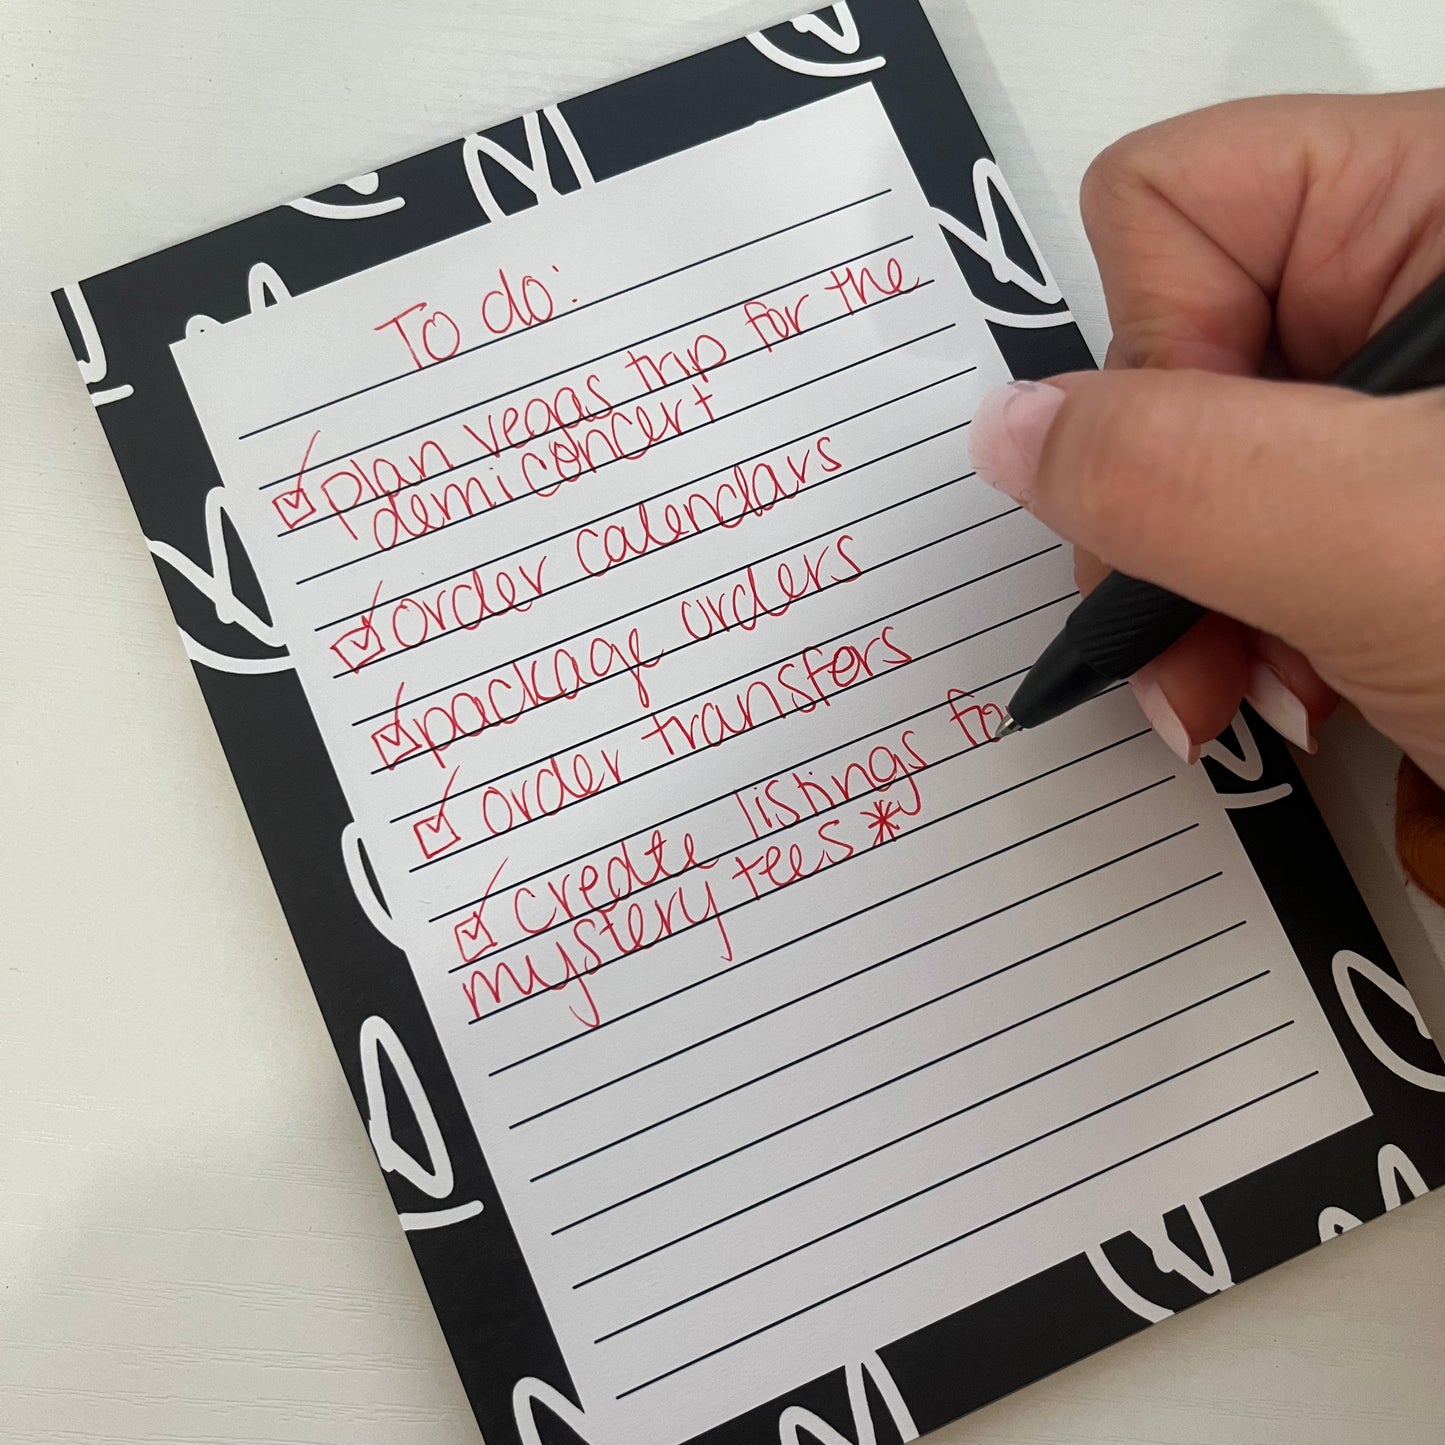 To do:
plan vegas trip for the
demi concert
order calendars
package orders
order transfers
create listings fo
mystery tees*